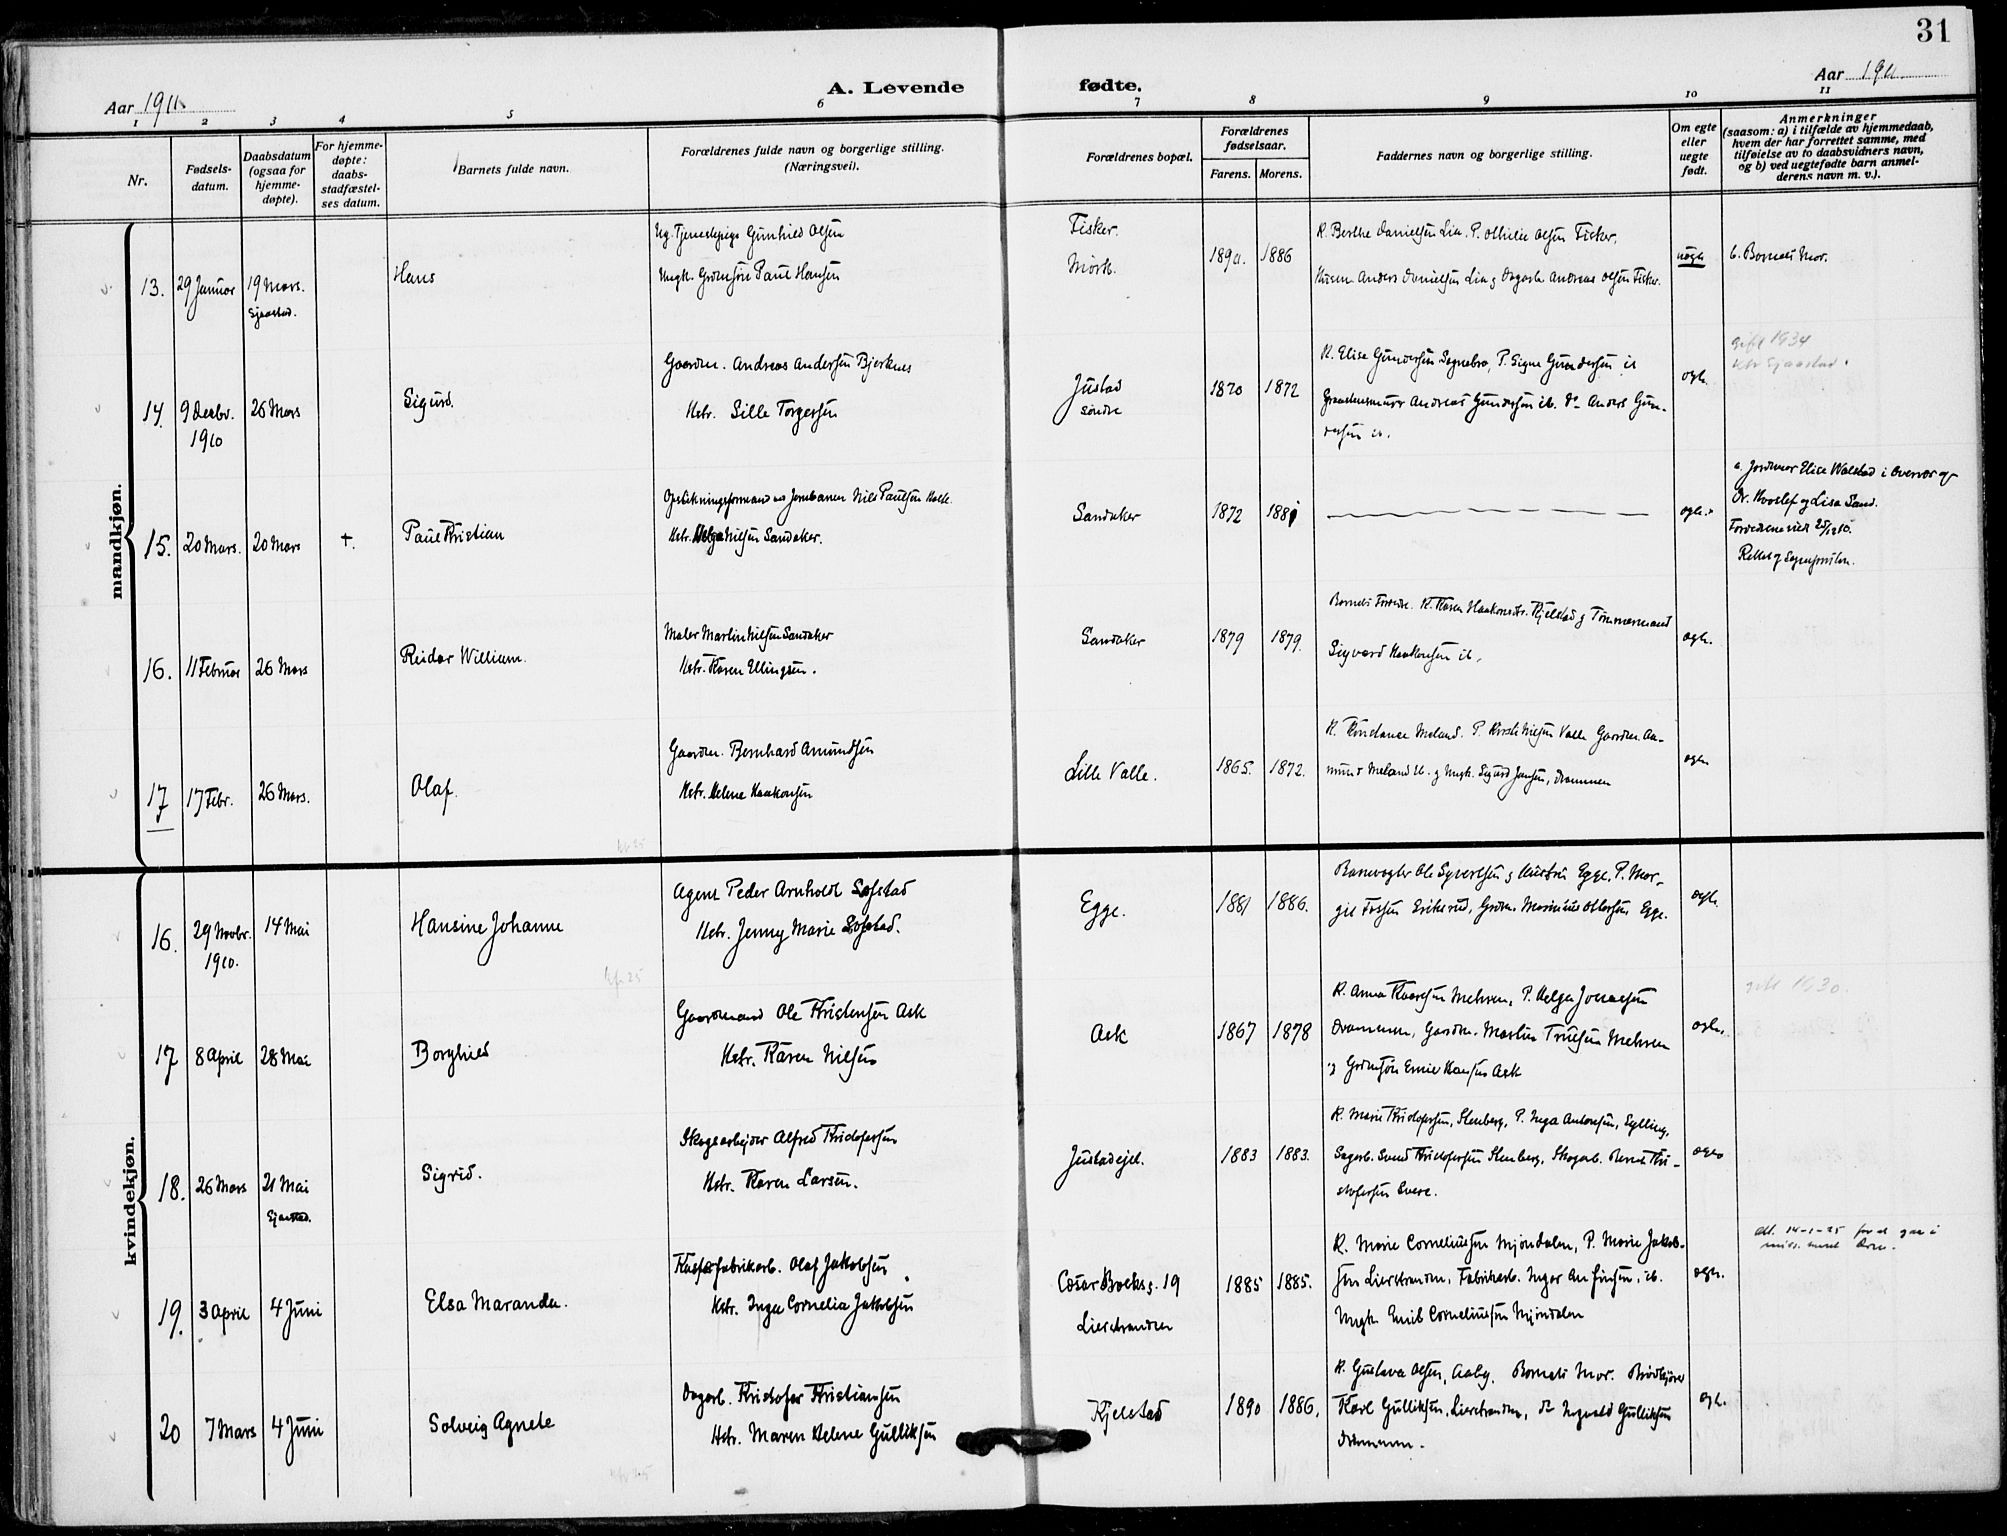 31
Aar 1911.
A. Levende fødte.
Aar 1911
1 2 3 4 5 6 7 8 9 10 11
Nr.
Fødsels-
datum.
Daabsdatum
(ogsaa for
hjemme-
døpte).
For hjemme-
døpte:
daabs-
stadfæstel-
ses datum.
Barnets fulde navn.
Forældrenes fulde navn og borgerlige stilling.
(Næringsveil).
Forældrenes bopæl.
Forældrenes
fødselsaar.
Farens. Morens.
Faddernes navn og borgerlige stilling.
Om egte
eller
uegte
født.
Anmerkninger
(saasom: a) i tilfælde av hjemmedaab,
hvem der har forrettet samme, med
tilføielse av to daabsvidners navn,
og b) ved uegtefødte barn anmel-
derens navn m. v.).
mandkjøn.
13. 29 Januar 19 Mars.
Sjaastad.
Hans
Ug. Tjenestepige Gunhild Olsen
Ungk. Grdmsøn Paul Hansen
Fisker.
Mørk.
1890. 1886
K. Berthe Danielsen Lia. P. Othilie Olsen Fisker.
Husm. Anders Danielsen Lia og Dagarb. Andreas Olsen Fisker.
uegte
b. Barnets Mor.
14. 9 Decbr.
1910
26 Mars
Sigurd.
Gaardm. Andreas Andersen Bjerknes
Hstr. Sille Torgersen
Justad
søndre
1870 1872
K. Elise Gundersen Sognebro, P. Signe Gundersen ib
Andreas Gundersen ib. do Anders Gun-
dersen ib.
egte.
gift 1934
Sjaastad.
15. 20 Mars. 20 Mars †.
Paul Kristian
Opstikningsformand ved Jernbanen Nils Paulsen Holte
Hstr. Helga Nilsen Sandaker.
Sandaker
1872 1881
egte.
a. Jordmor Elise Walstad i Overvær av
Dr. Hvoslef og Lisa Sand.
Forældrene viet 25/12 10.
16. 11 Februar 26 Mars
Reidar William.
Maler Martin Nilsen Sandaker
Hstr. Karen Ellingsen.
Sandaker
1879 1879.
Barnets Forældre. K. Karen Haakonsdtr. Kjelstad og Tømmermand
Sigvard Haakonsen ib.
egte.
17 17 Febr. 26 Mars.
Olaf.
Gaardm. Bernhard Amundsen
Hstr. Helene Haakonsen
Lille Valle.
1865. 1872.
K. Konstance Meland. P. Kirsti Nilsen Valle Gaardm. Aa-
mund Meland ib. og Ungk. Sigurd Jensen, Drammen
egte
kvindekjøn.
16. 29 Novbr.
1910.
14 Mai
Hansine Johanne
Agent Peder Arnholdt Sofstad
Hstr. Jenny Marie Sofstad.
Egge.
1881 1886.
Banevogter Ole Syvertsen og Hustru Egge, P. Mar-
git Fossen Eikerud, Grdm. Marinius Ottersen Egge.
egte.
17 8 April 28 Mai
Borghild
Gaardmand Ole Kristensen Ask
Hstr. Karen Nilsen
Ask
1867 1878
K. Anna Kaaresen Mehren, P. Helga Jonassen
Drammen, Gaardm. Martin Truesen Mehren
og Grdmsøn Emil Hansen Ask
egte.
gift 1930.
18. 26 Mars 21 Mai
Sjaastad.
Sigrid.
Skogsarbejder Alfred Kristofersen
Hstr. Karen Larsen.
Justadejet.
1883 1883.
K. Marie Kristofersen, Stenberg, P. Inga Antonsen, Sylling,
Sagarb. Svend Kristofersen Stenberg, Skogarb. Bernt Kri-
stofersen Svere.
egte
19. 3 April 4 Juni
Elsa Marande.
Kasfabrikarb. Olaf Jakobsen
Hstr. Inga Cornelia Jakobsen
Cæsar Boeksg. 19
Lierstranden
1885 1885.
K. Marie Corneliussen Mjøndalen, P. Marie Jakob-
sen Lierstranden, Fabrikarb. Ingar Anfinsen, ib.
Ungk. Emil Corneliussen Mjøndalen
egte.
Att. 14-1-25 for at gaa i
20 7 Mars 4 Juni
Solveig Agnete
Dagarb. Kristofer Kristiansen
Hstr. Maren Helene Gulliksen
Kjelstad
1890 1886.
K. Gustava Olsen, Aaby. Barnets Mor. Brødkjører
Karl Gulliksen, Lierstranden, do Ingvald Gulliksen
Drammen.
egte.